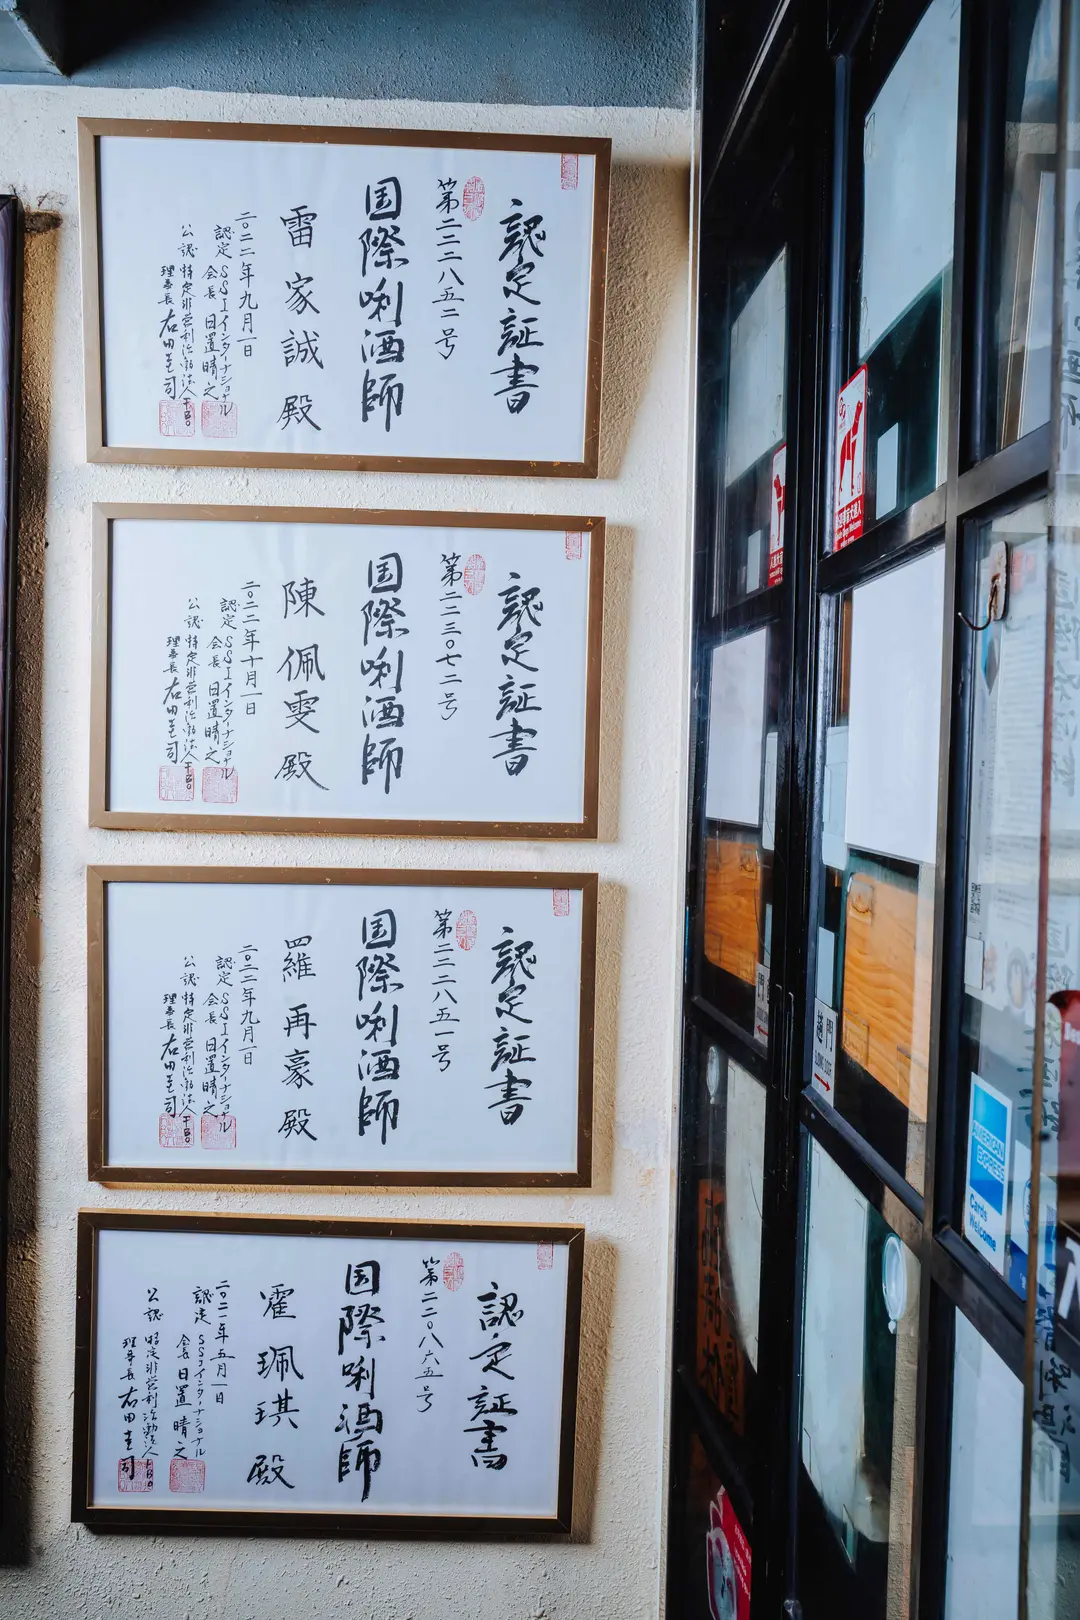 認定証書
第二二二八五二号
国際唎酒師
雷家誠殿
二〇二二年九月一日
認定 SSIインターナショナル
会長 日置晴之
公認 特定非営利活動法人FBO
理事長 右田圭司
認定証書
第二二三〇七二号
国際唎酒師
陳佩雯殿
二〇二二年十月一日
認定 SSIインターナショナル
会長 日置晴之
公認 特定非営利活動法人FBO
理事長 右田圭司
認定証書
第二二二八五一号
国際唎酒師
羅再豪殿
二〇二二年九月一日
認定 SSIインターナショナル
会長 日置晴之
公認 特定非営利活動法人FBO
理事長 右田圭司
認定証書
第二二〇八六五号
国際唎酒師
霍珮琪殿
二〇二二年五月一日
認定 SSIインターナショナル
会長 日置晴之
公認 特定非営利活動法人FBO
理事長 右田圭司
AMERICAN
EXPRESS
Cards
Welcome